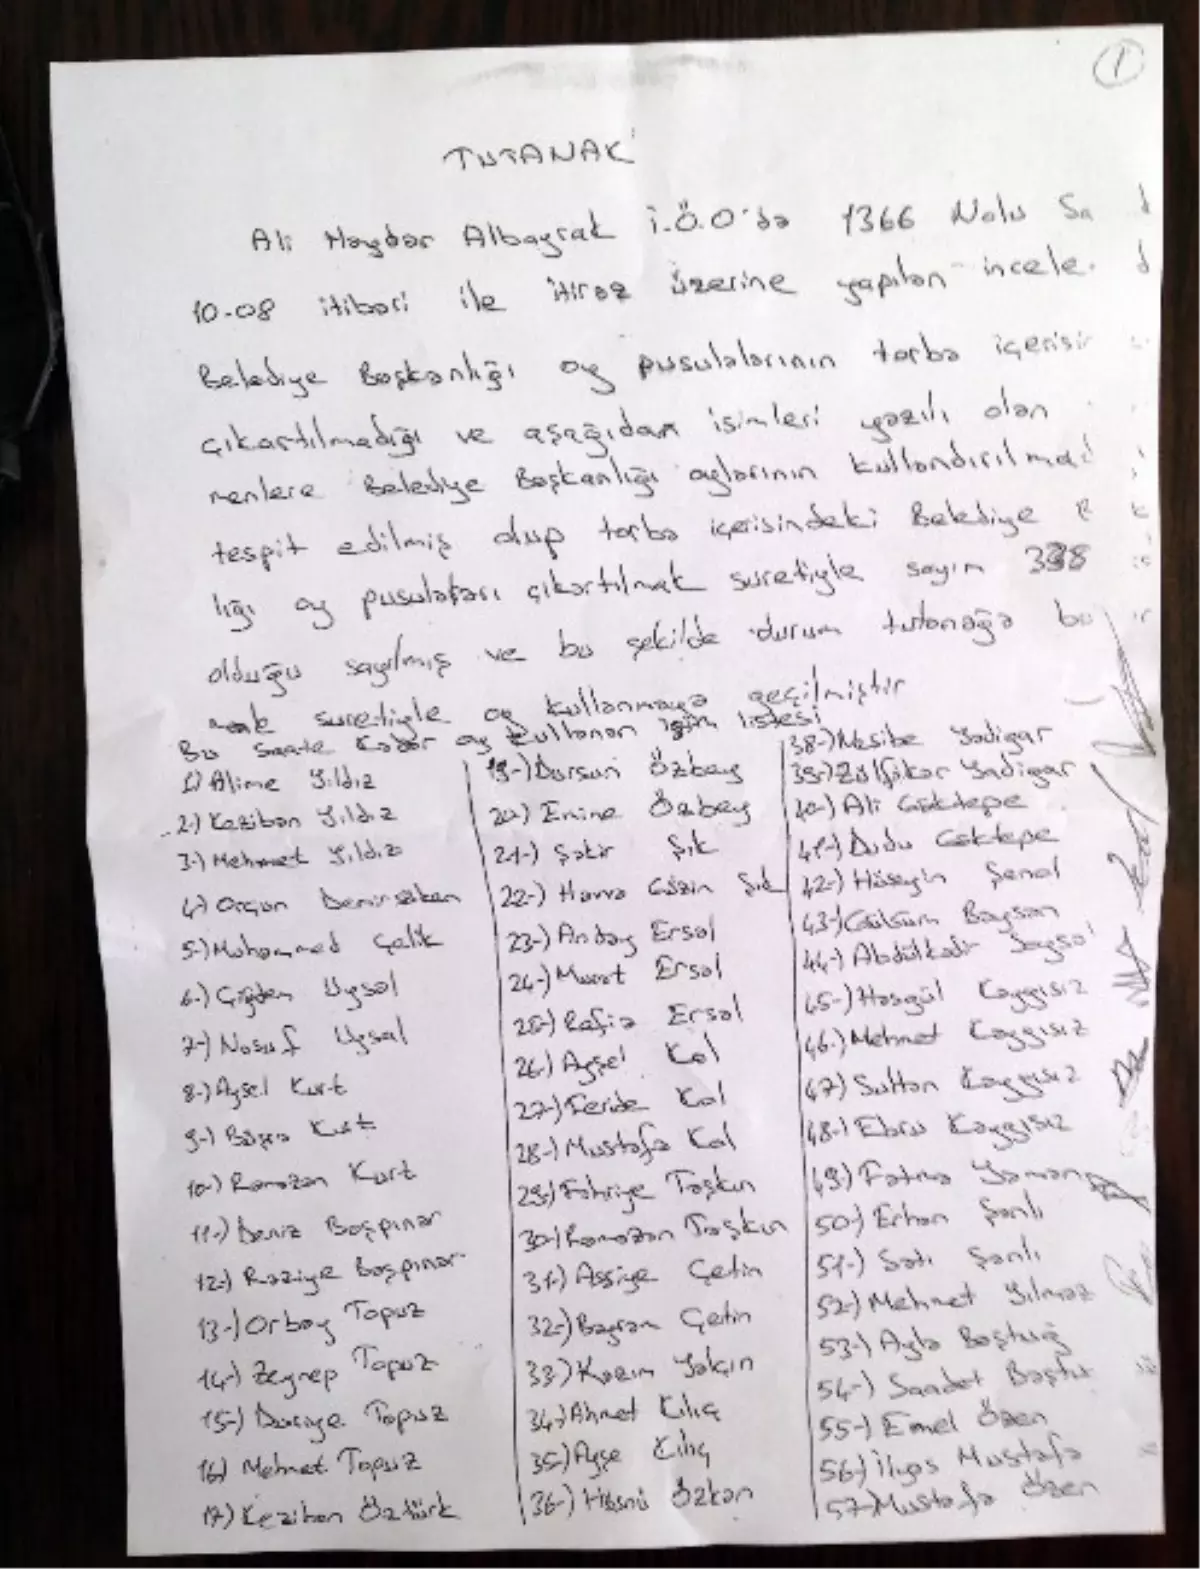 1
TUTANAK
Ali Haydar Albayrak İ.Ö.O'da 1366 Nolu Sa d
10-08 itibari ile itiraz üzerine yapılan incele d
Belediye Başkanlığı oy pusulalarının torba içerisin
çıkartılmadığı ve aşağıdan isimleri yazılı olan
menlere Belediye Başkanlığı oylarının kullandırılmad
tespit edilmiş olup torba içerisindeki Belediye B k
lığı oy pusulaları çıkartılmak suretiyle sayım 338
olduğu sayılmış ve bu şekilde durum tutanağa bu
suretiyle oy kullanmaya geçilmiştir
Bu saate kadar oy kullanan isim listesi
1) Alime Yıldız
2-) Keziban Yıldız
3-) Mehmet Yıldız
4-) Orçun Demirseken
5-) Muhammed Çelik
6-) Çiğdem Uysal
7-) Uysal
8-) Aysel Kurt
9-) Büşra Kurt
10-) Ramazan Kurt
11-) Deniz Başpınar
12-) Raziye Başpınar
13-) Orbay Topuz
14-) Zeynep Topuz
15-) Duriye Topuz
16) Mehmet Topuz
17) Keziban Öztürk
19-) Dursun Özbey
20-) Emine Özbey
21-) Şakir Şık
22-) Havva Gözin Şık
23-) Anday Ersal
24-) Murat Ersal
25-) Rafia Ersal
26-) Aysel Kal
27-) Feride Kal
28-) Mustafa Kal
29-) Fahriye Taşkın
30-) Ramazan Taşkın
31-) Assiye Çetin
32-) Bayram Çetin
33-) Kazım Yalçın
34-) Ahmet Kılıç
35-) Ayşe Kılıç
36-) Hüsnü Özkan
38-) Nesibe Yadigar
39-) Zülfikar Yadigar
40-) Ali Göktepe
41-) Dudu Göktepe
42-) Hüseyin Şenal
43-) Gülsüm Baysan
44-) Abdülkadir
45-) Hasgül Kaygısız
46-) Mehmet Kaygısız
47) Sultan Kaygısız
48-) Ebru Kaygısız
49-) Fatma Yaman
50-) Erhan Şanlı
51-) Satı Şanlı
52-) Mehmet Yılmaz
53-) Ayla Baştuğ
54-) Saadet Baştu
55-) Emel Özen
56-) İlyas Mustafa
57-) Mustafa Özen